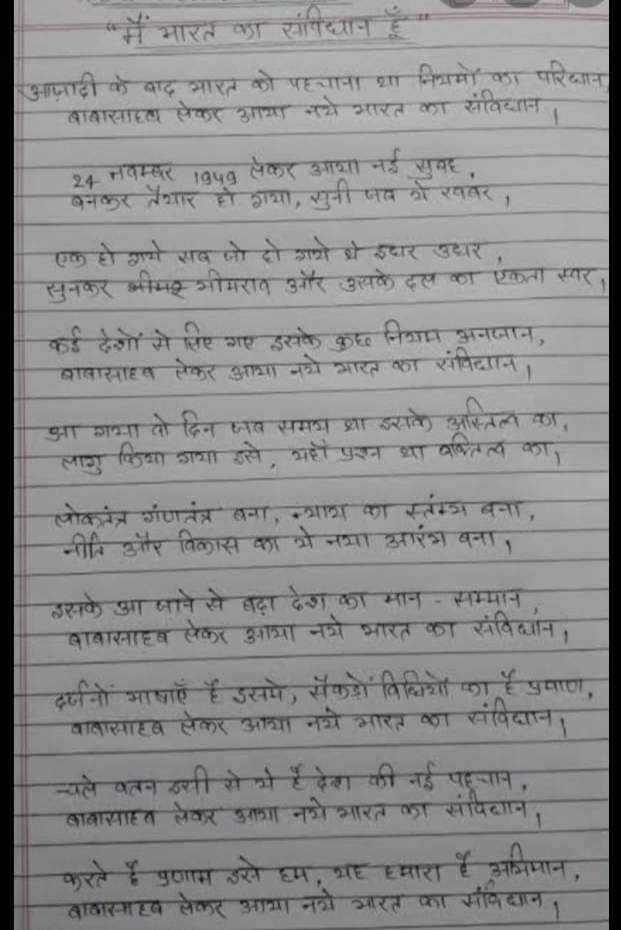 "मैं भारत का संविधान हूँ"
आज़ादी के बाद भारत को पहनाना था नियमों का परिधान,
बाबासाहब लेकर आया नये भारत का संविधान,
24 नवम्बर 1949 लेकर आया नई सुबह,
बनकर तैयार हो गया, सुनी जब ये खबर,
एक हो गये सब जो हो गये थे इधर उधर,
सुनकर भीमराव और उसके दल का एकता स्वर,
कई देशों से लिए गए इसके कुछ नियम अनजान,
बाबासाहब लेकर आया नये भारत का संविधान,
आ गया वो दिन जब समय था इसके अस्तित्व का,
लागु किया गया इसे, यहाँ प्रश्न था व्यक्तित्व का,
लोकतंत्र गंणतंत्र बना, न्याय का स्तंम्भ बना,
नीति और विकास का ये नया आरंभ बना,
इसके आ जाने से बढ़ा देश का मान - सम्मान,
बाबासाहब लेकर आया नये भारत का संविधान,
दर्जनों भाषाएँ है इसमे, सैकड़ों विधियों का है प्रमाण,
बाबासाहब लेकर आया नये भारत का संविधान,
चले वतन इसी से ये है देश की नई पहचान,
बाबासाहब लेकर आया नये भारत का संविधान,
करते है प्रणाम इसे हम, यह हमारा है अभिमान,
बाबासाहब लेकर आया नये भारत का संविधान,